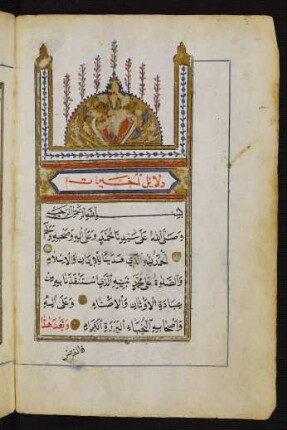 دلائل الخيرات
بسم الله الرحمن الرحيم
وصلى الله على سيدنا محمد وعلى آله وصحبه وسلم
الحمد لله الذي هدينا للايمان والاسلام
والصلوة على محمد نبيه الذي استنقذنا به من
عبادة الاوثان والاصنام وعلى اله
واصحابه النجباء البررة الكرام وبعد هذا
فالغرض